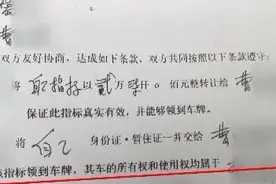 曹
双方友好协商、达成如下条款，双方共同按照以下条款遵守：
将 取指标以贰万柒仟 0 佰元整转让给 曹
保证此指标真实有效，并能够领到车牌。
将 自己 身份证·暂住证一并交给 曹
该指标领到车牌，其车的所有权和使用权均属于